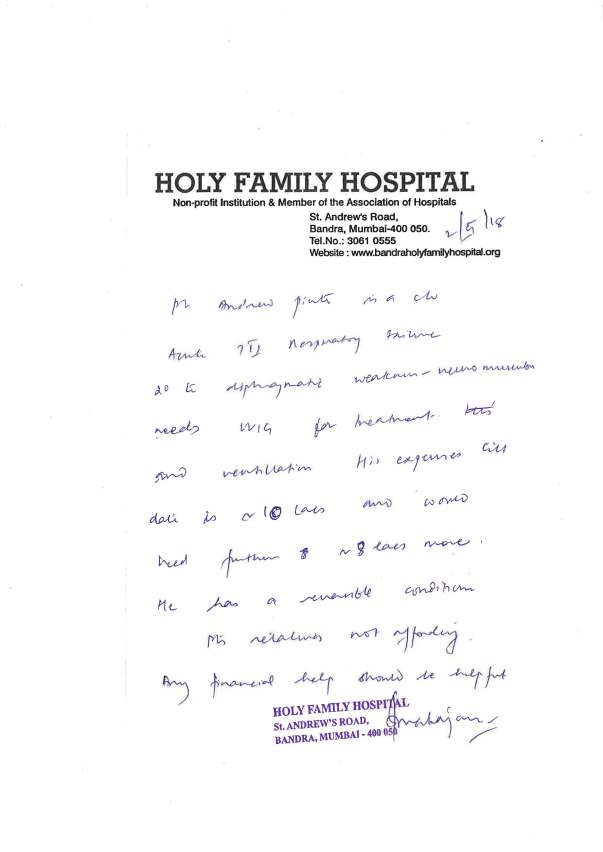 HOLY FAMILY HOSPITAL
Non-profit Institution & Member of the Association of Hospitals
St. Andrew's Road,
Bandra, Mumbai-400 050.
Tel.No.: 3061 0555
Website : www.bandraholyfamilyhospital.org
2/5/18
pt Andrew pinto is a c/o
Acute Respiratory Failure
20 to diphragmatic weakness - neuromuscular
needs IVIG for treatment.
and ventillation His expenses till
date is ~ 10 Lacs and would
need further ~ 8 lacs more.
He has a reversible condition
Pts relatives not affording.
Any financial help should be helpful
HOLY FAMILY HOSPITAL
St. ANDREW'S ROAD,
BANDRA, MUMBAI - 400 050